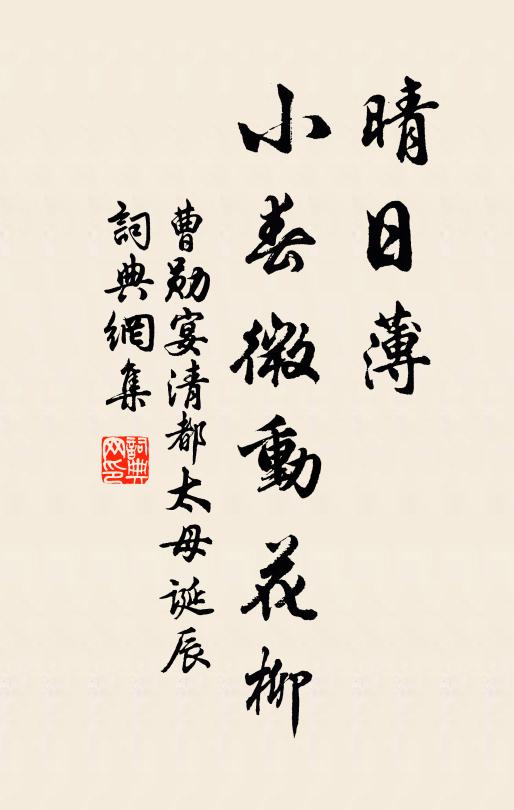 晴日薄
小春微動花柳
曹勛宴清都太母誕辰
詞典網集
詞典网印